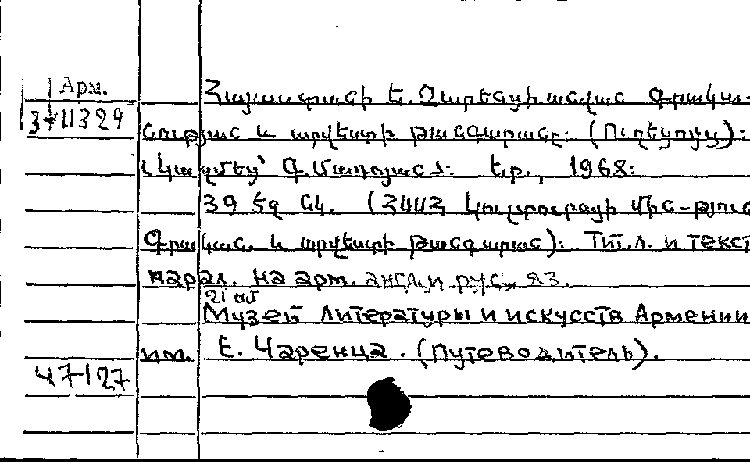 Арм.
Հայաստանի Ե. Չարենցի անվան գրակա-
3-11329
նության և արվեստի թանգարանը: (Ուղեցույց):
Կազմեց՝ Գ. Եր., 1968:
39 էջ նկ. (ՀՍՍՀ կուլտուրայի մին-թյուն
Գրական. և արվեստի թանգարան): Тит. л. и текст
парал. на арм. англ. и рус. яз.
Музей литературы и искусств Армении
им. Е. Чаренца. (Путеводитель).
47-127